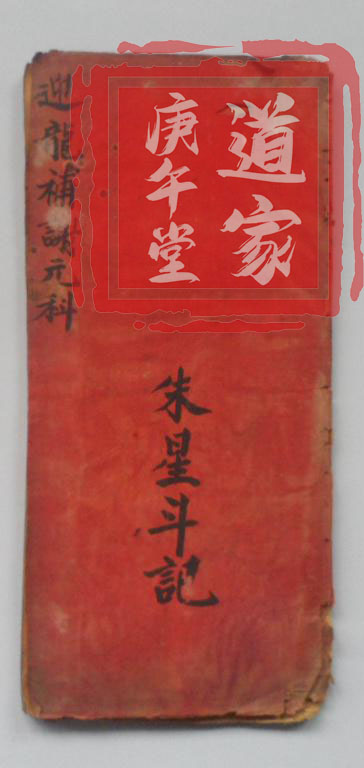 道家
庚午堂
朱星斗記
迎龍補謝元科